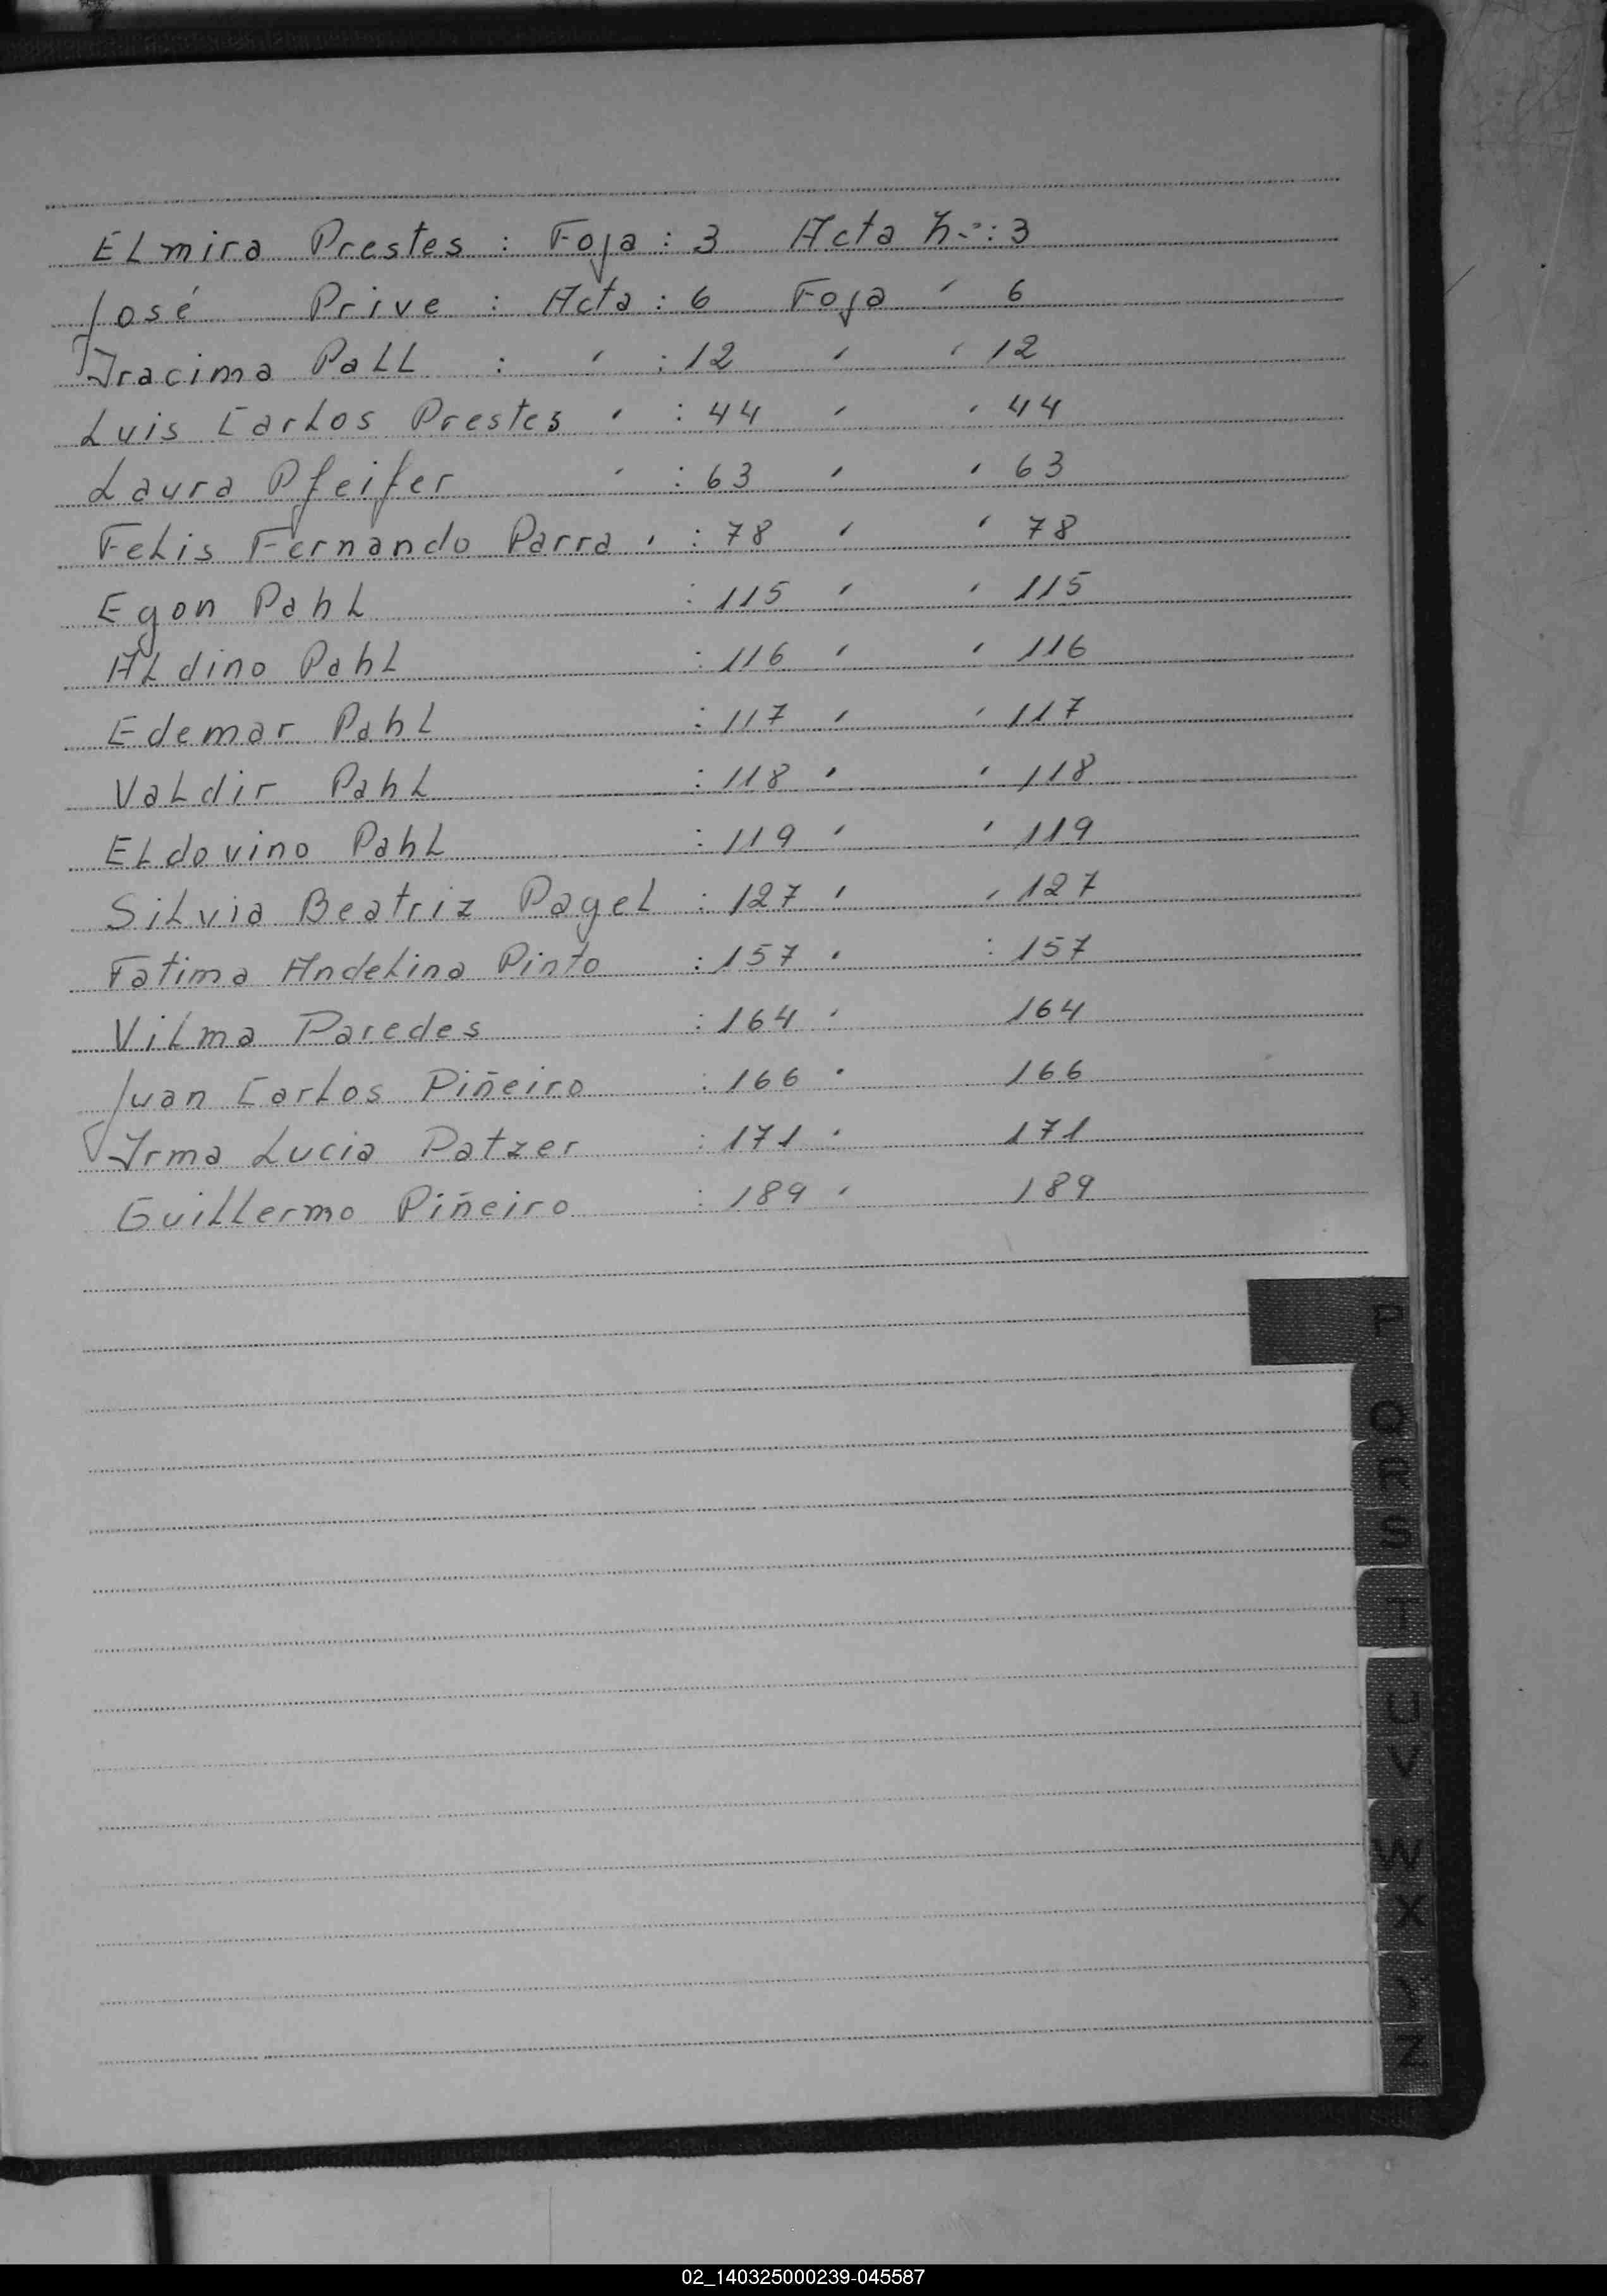 Elmira Prestes : Foja : 3 Acta n-º: 3
José Prive : Acta : 6 Foja ' 6
Iracima Pall : ' : 12 ' ' 12
Luis Carlos Prestes ' : 44 ' ' 44
Laura Pfeifer ' : 63 ' ' 63
Felis Fernando Parra ' : 78 ' ' 78
Egon Pahl : 115 ' ' 115
Aldino Pahl : 116 ' ' 116
Edemar Pahl : 117 ' ' 117
Valdir Pahl : 118 ' ' 118
Eldovino Pahl : 119 ' ' 119
Silvia Beatriz Pagel : 127 ' ' 127
Fatima Andelina Pinto : 157 ' : 157
Vilma Paredes : 164 ' 164
Juan Carlos Piñeiro : 166 ' 166
Irma Lucia Patzer : 171 ' 171
Guillermo Piñeiro : 189 ' 189
P
Q
R
S
T
U
V
W
X
Y
Z
02_140325000239-045587